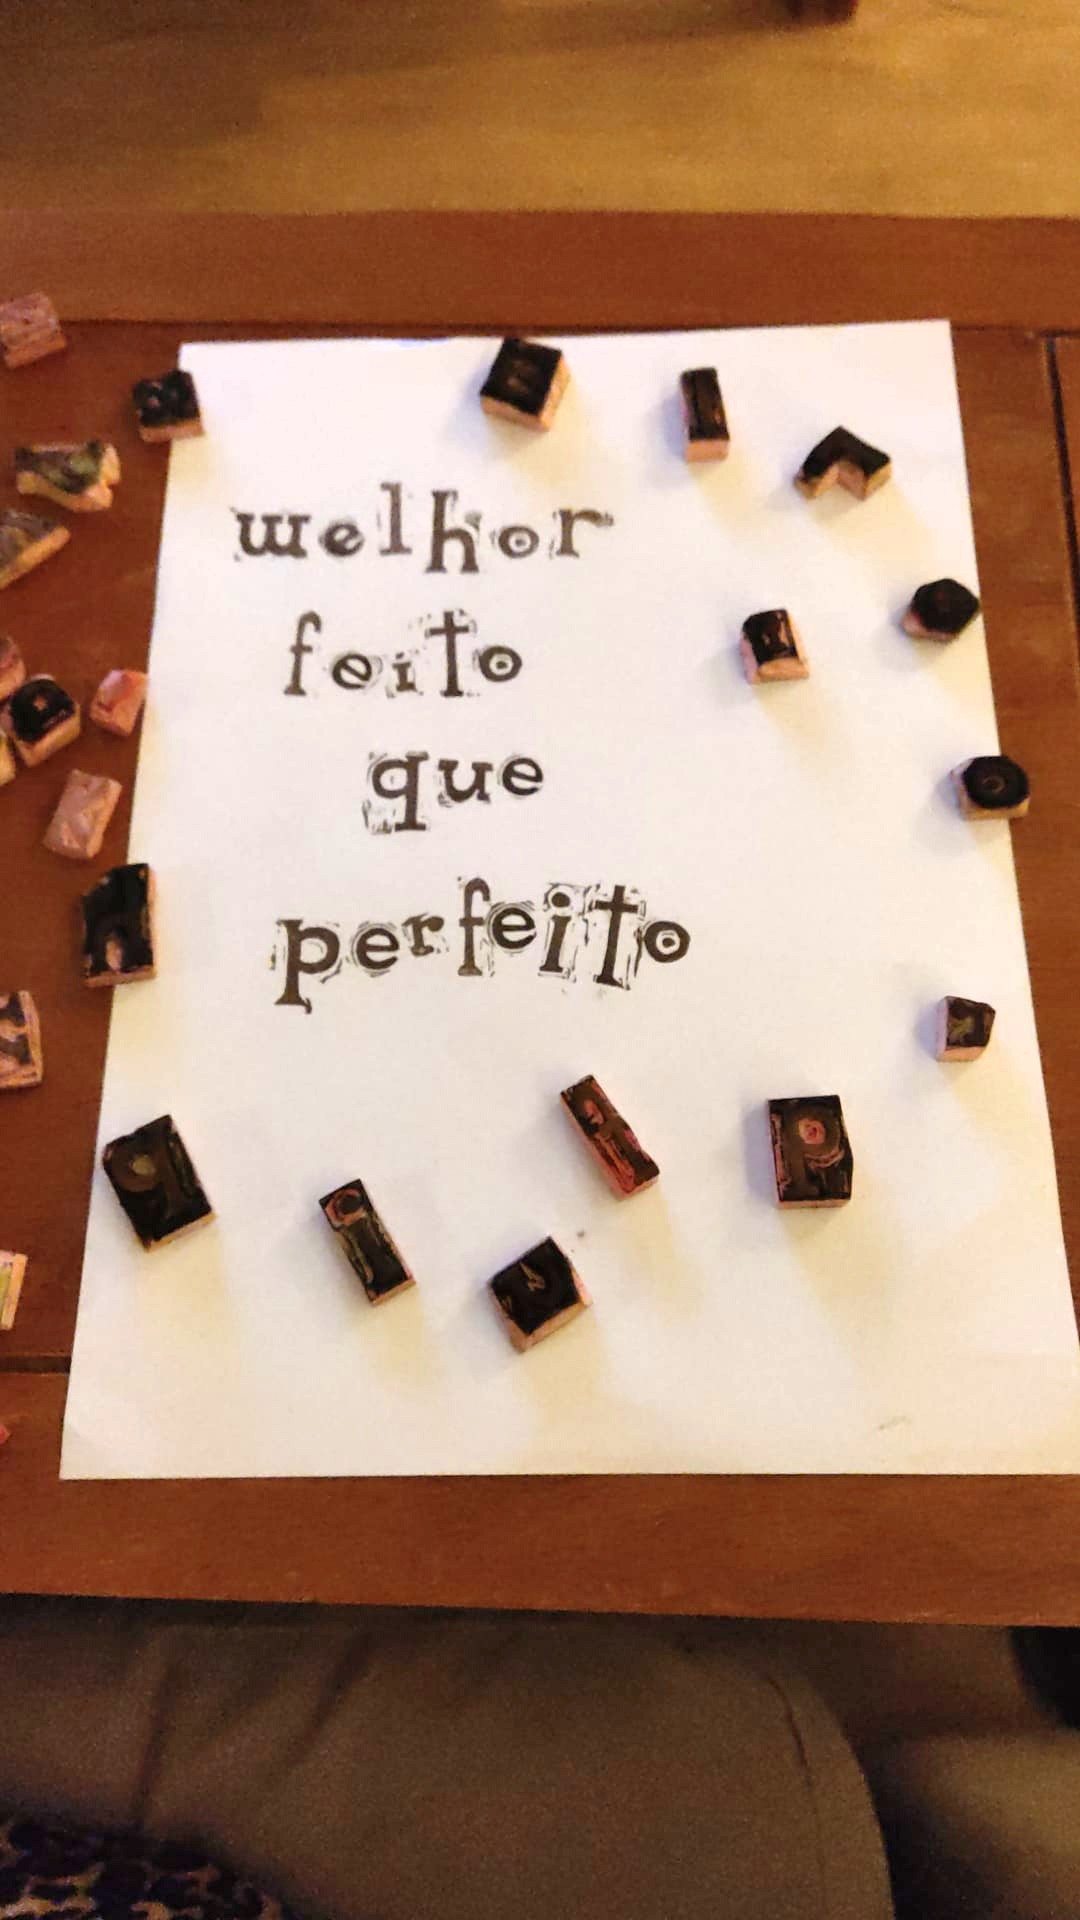 welhor
feito
que
perfeito